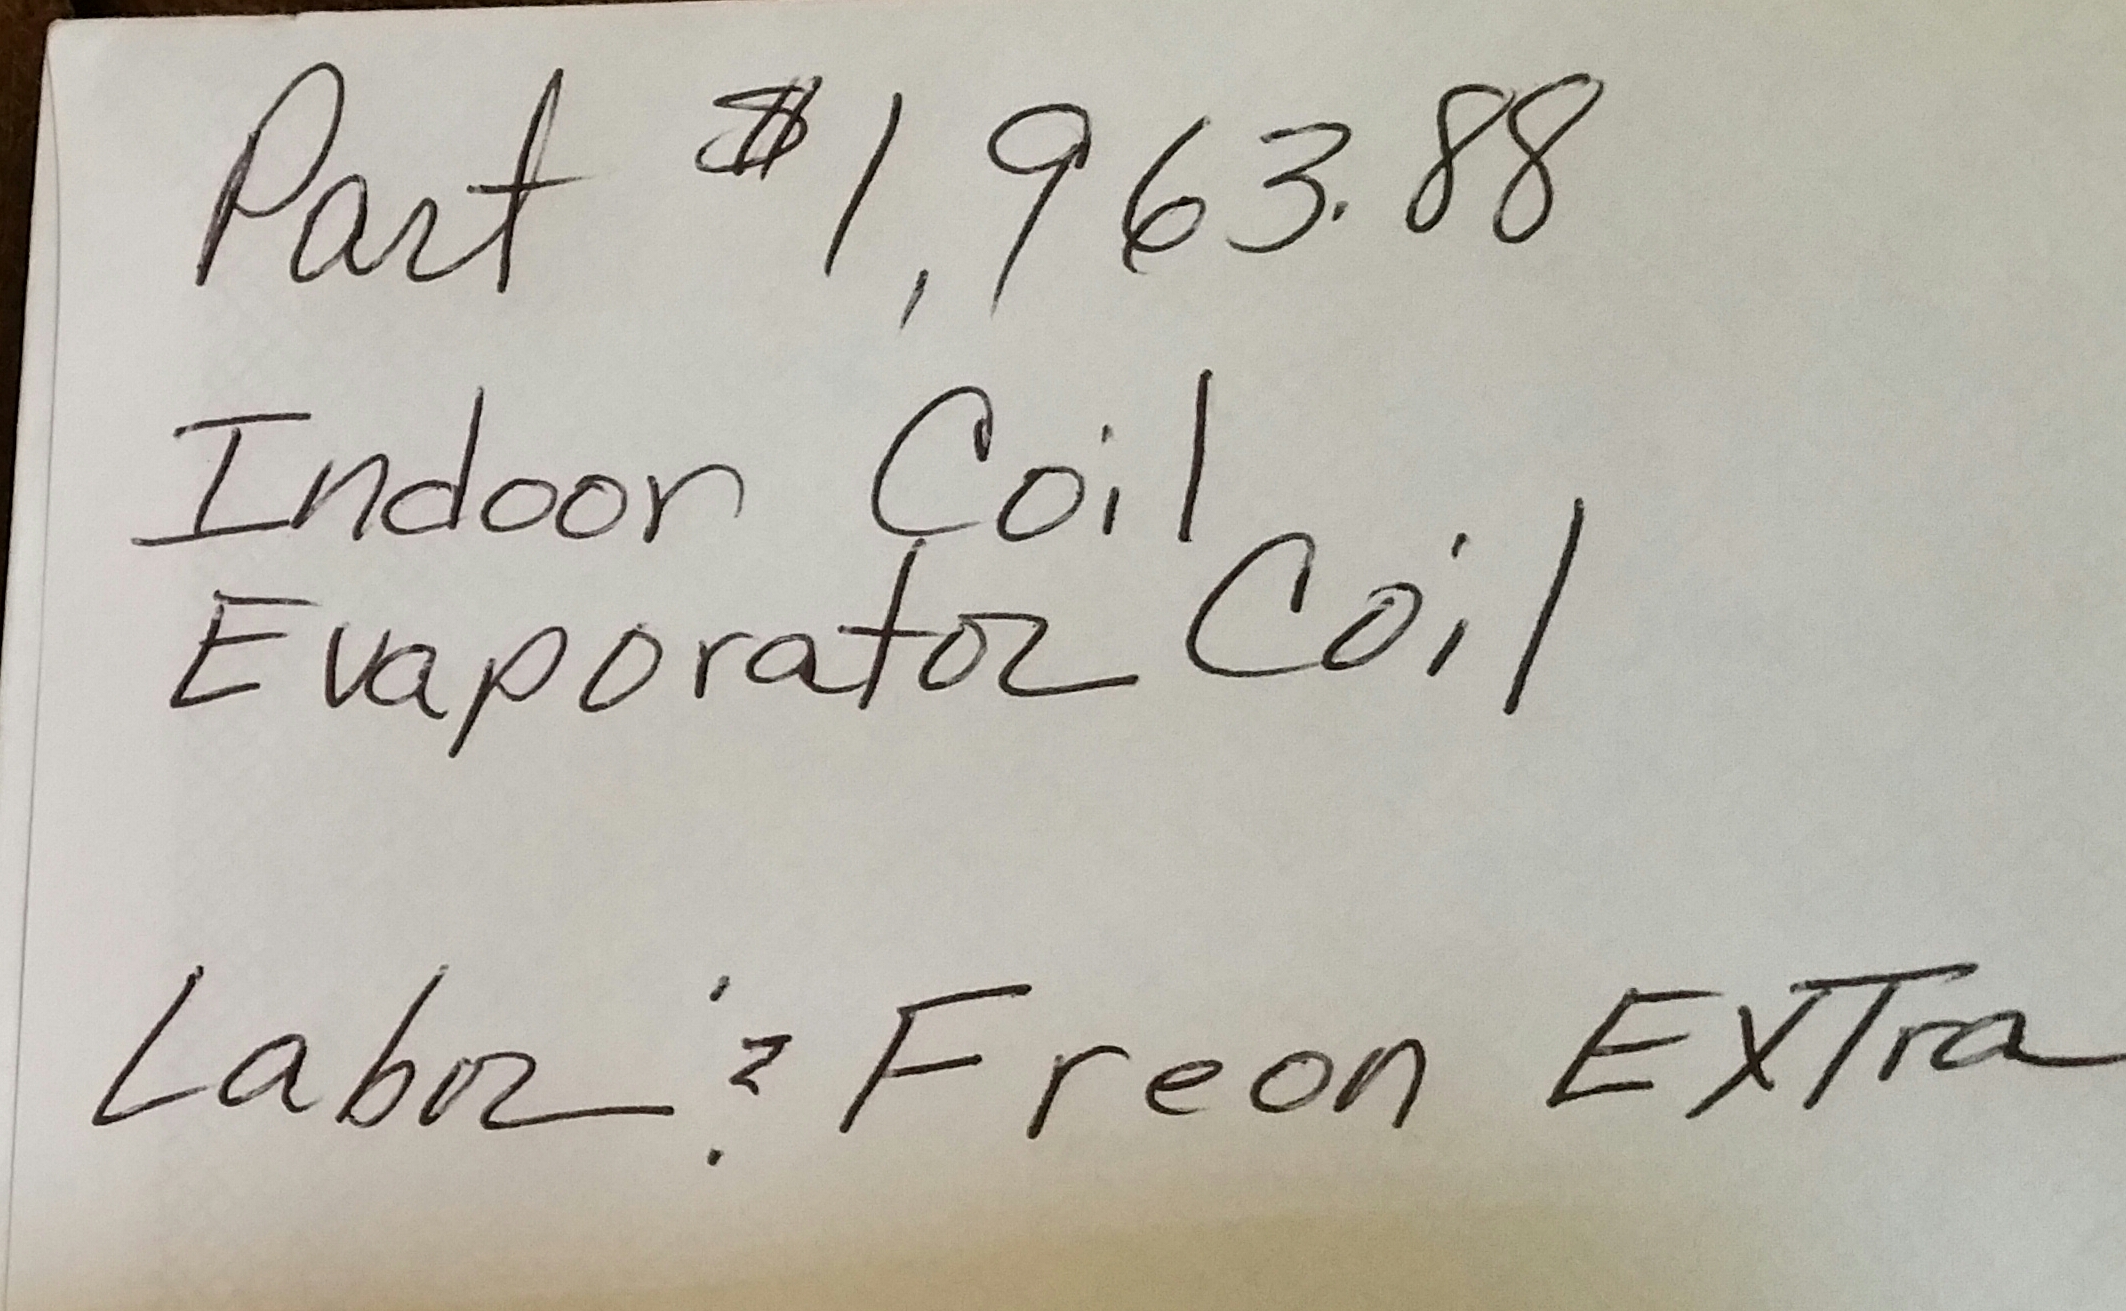 Part $1,963.88
Indoor Coil
Evaporator Coil
Labor & Freon ExTra